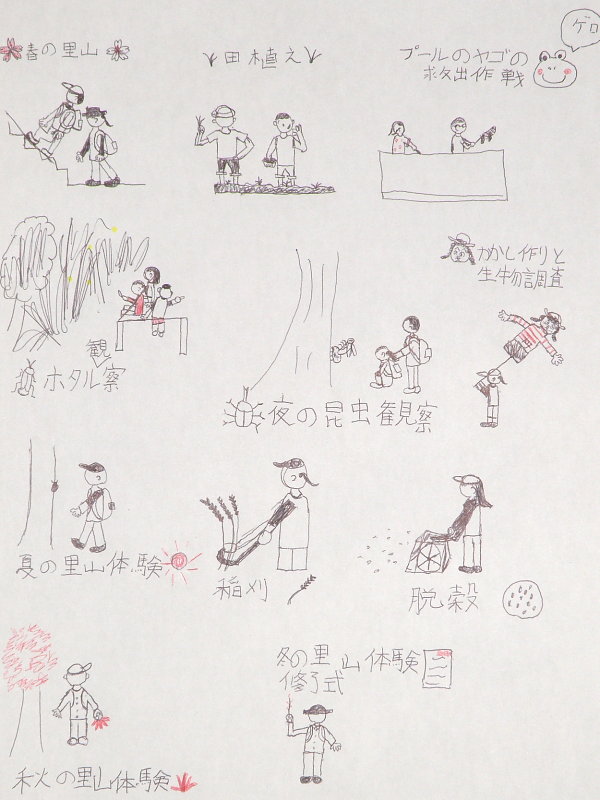 春の里山
田植え
プールのヤゴの
救出作戦
ゲロ
かかし作りと
生物調査
ホタル観察
夜の昆虫観察
夏の里山体験
稲刈
脱穀
冬の里山体験
修了式
秋の里山体験